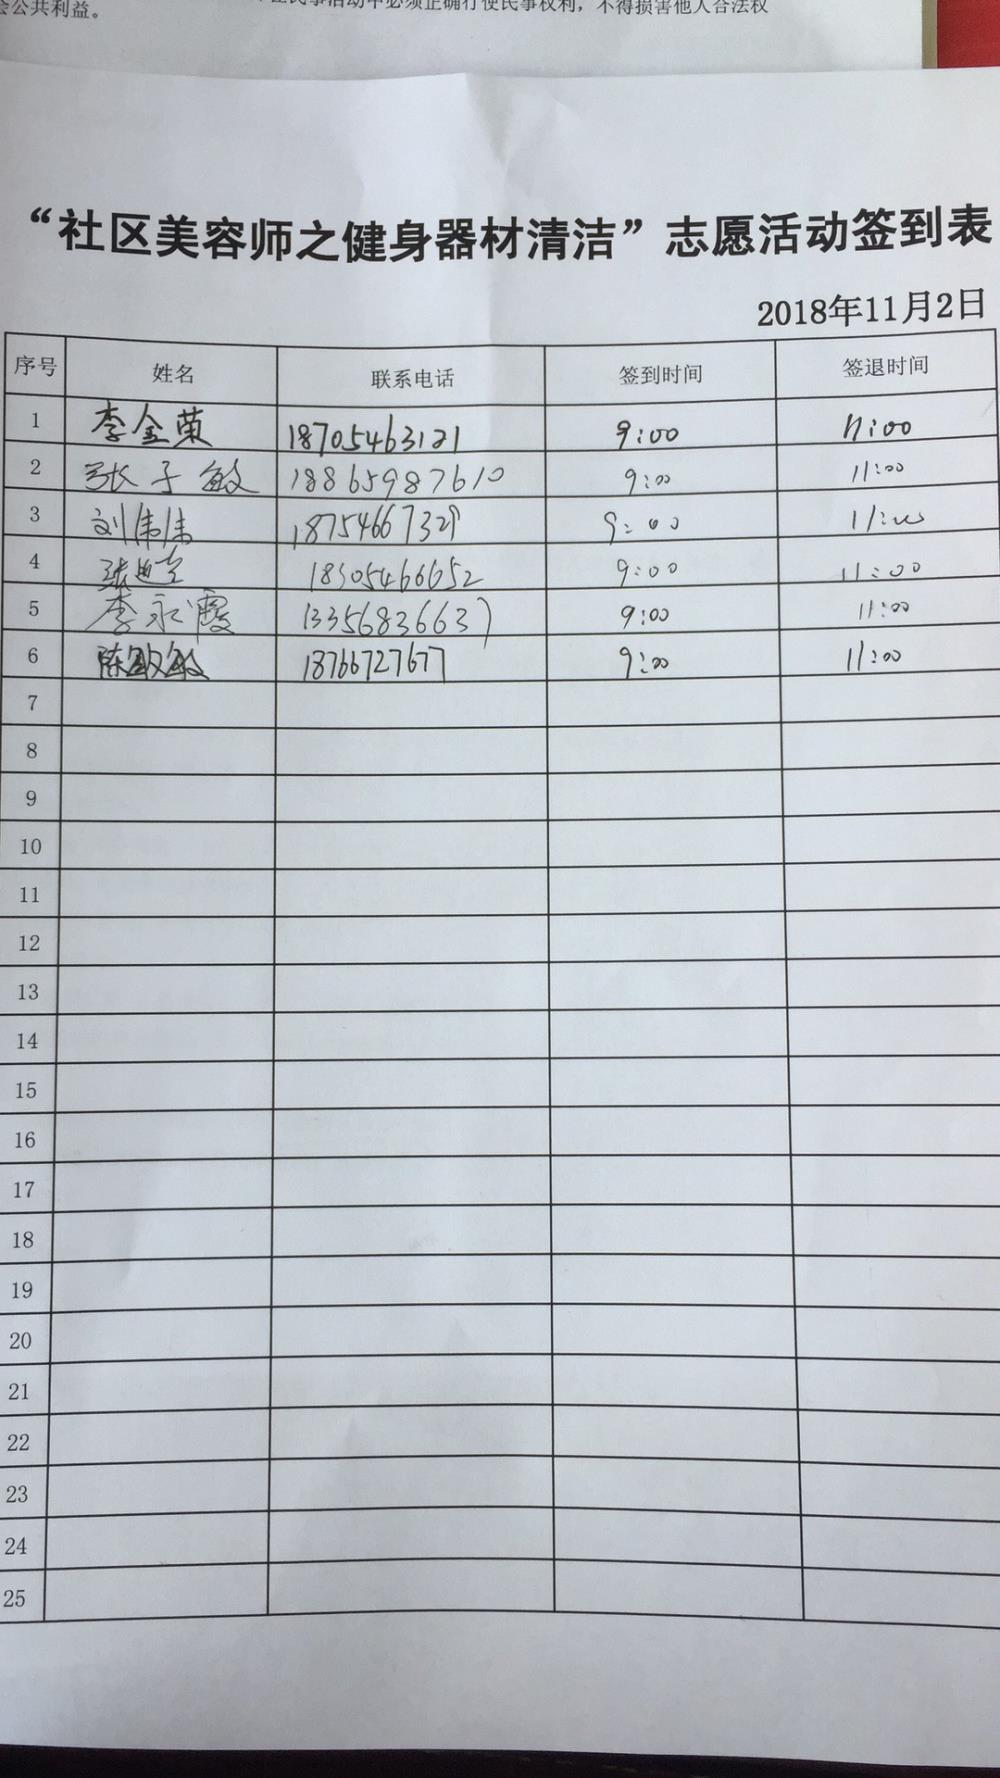 会公共利益。
民事活动中必须正确行使民事权利，不得损害他人合法权
“社区美容师之健身器材清洁”志愿活动签到表
2018年11月2日
序号 姓名 联系电话 签到时间 签退时间
1 李金荣 18705463121 9:00 11:00
2 张子敏 18865987610 9:00 11:00
3 刘伟伟 18754667329 9:00 11:00
4 18305466652 9:00 11:00
5 李永霞 13356836637 9:00 11:00
6 陈敏敏 18766727677 9:00 11:00
7
8
9
10
11
12
13
14
15
16
17
18
19
20
21
22
23
24
25